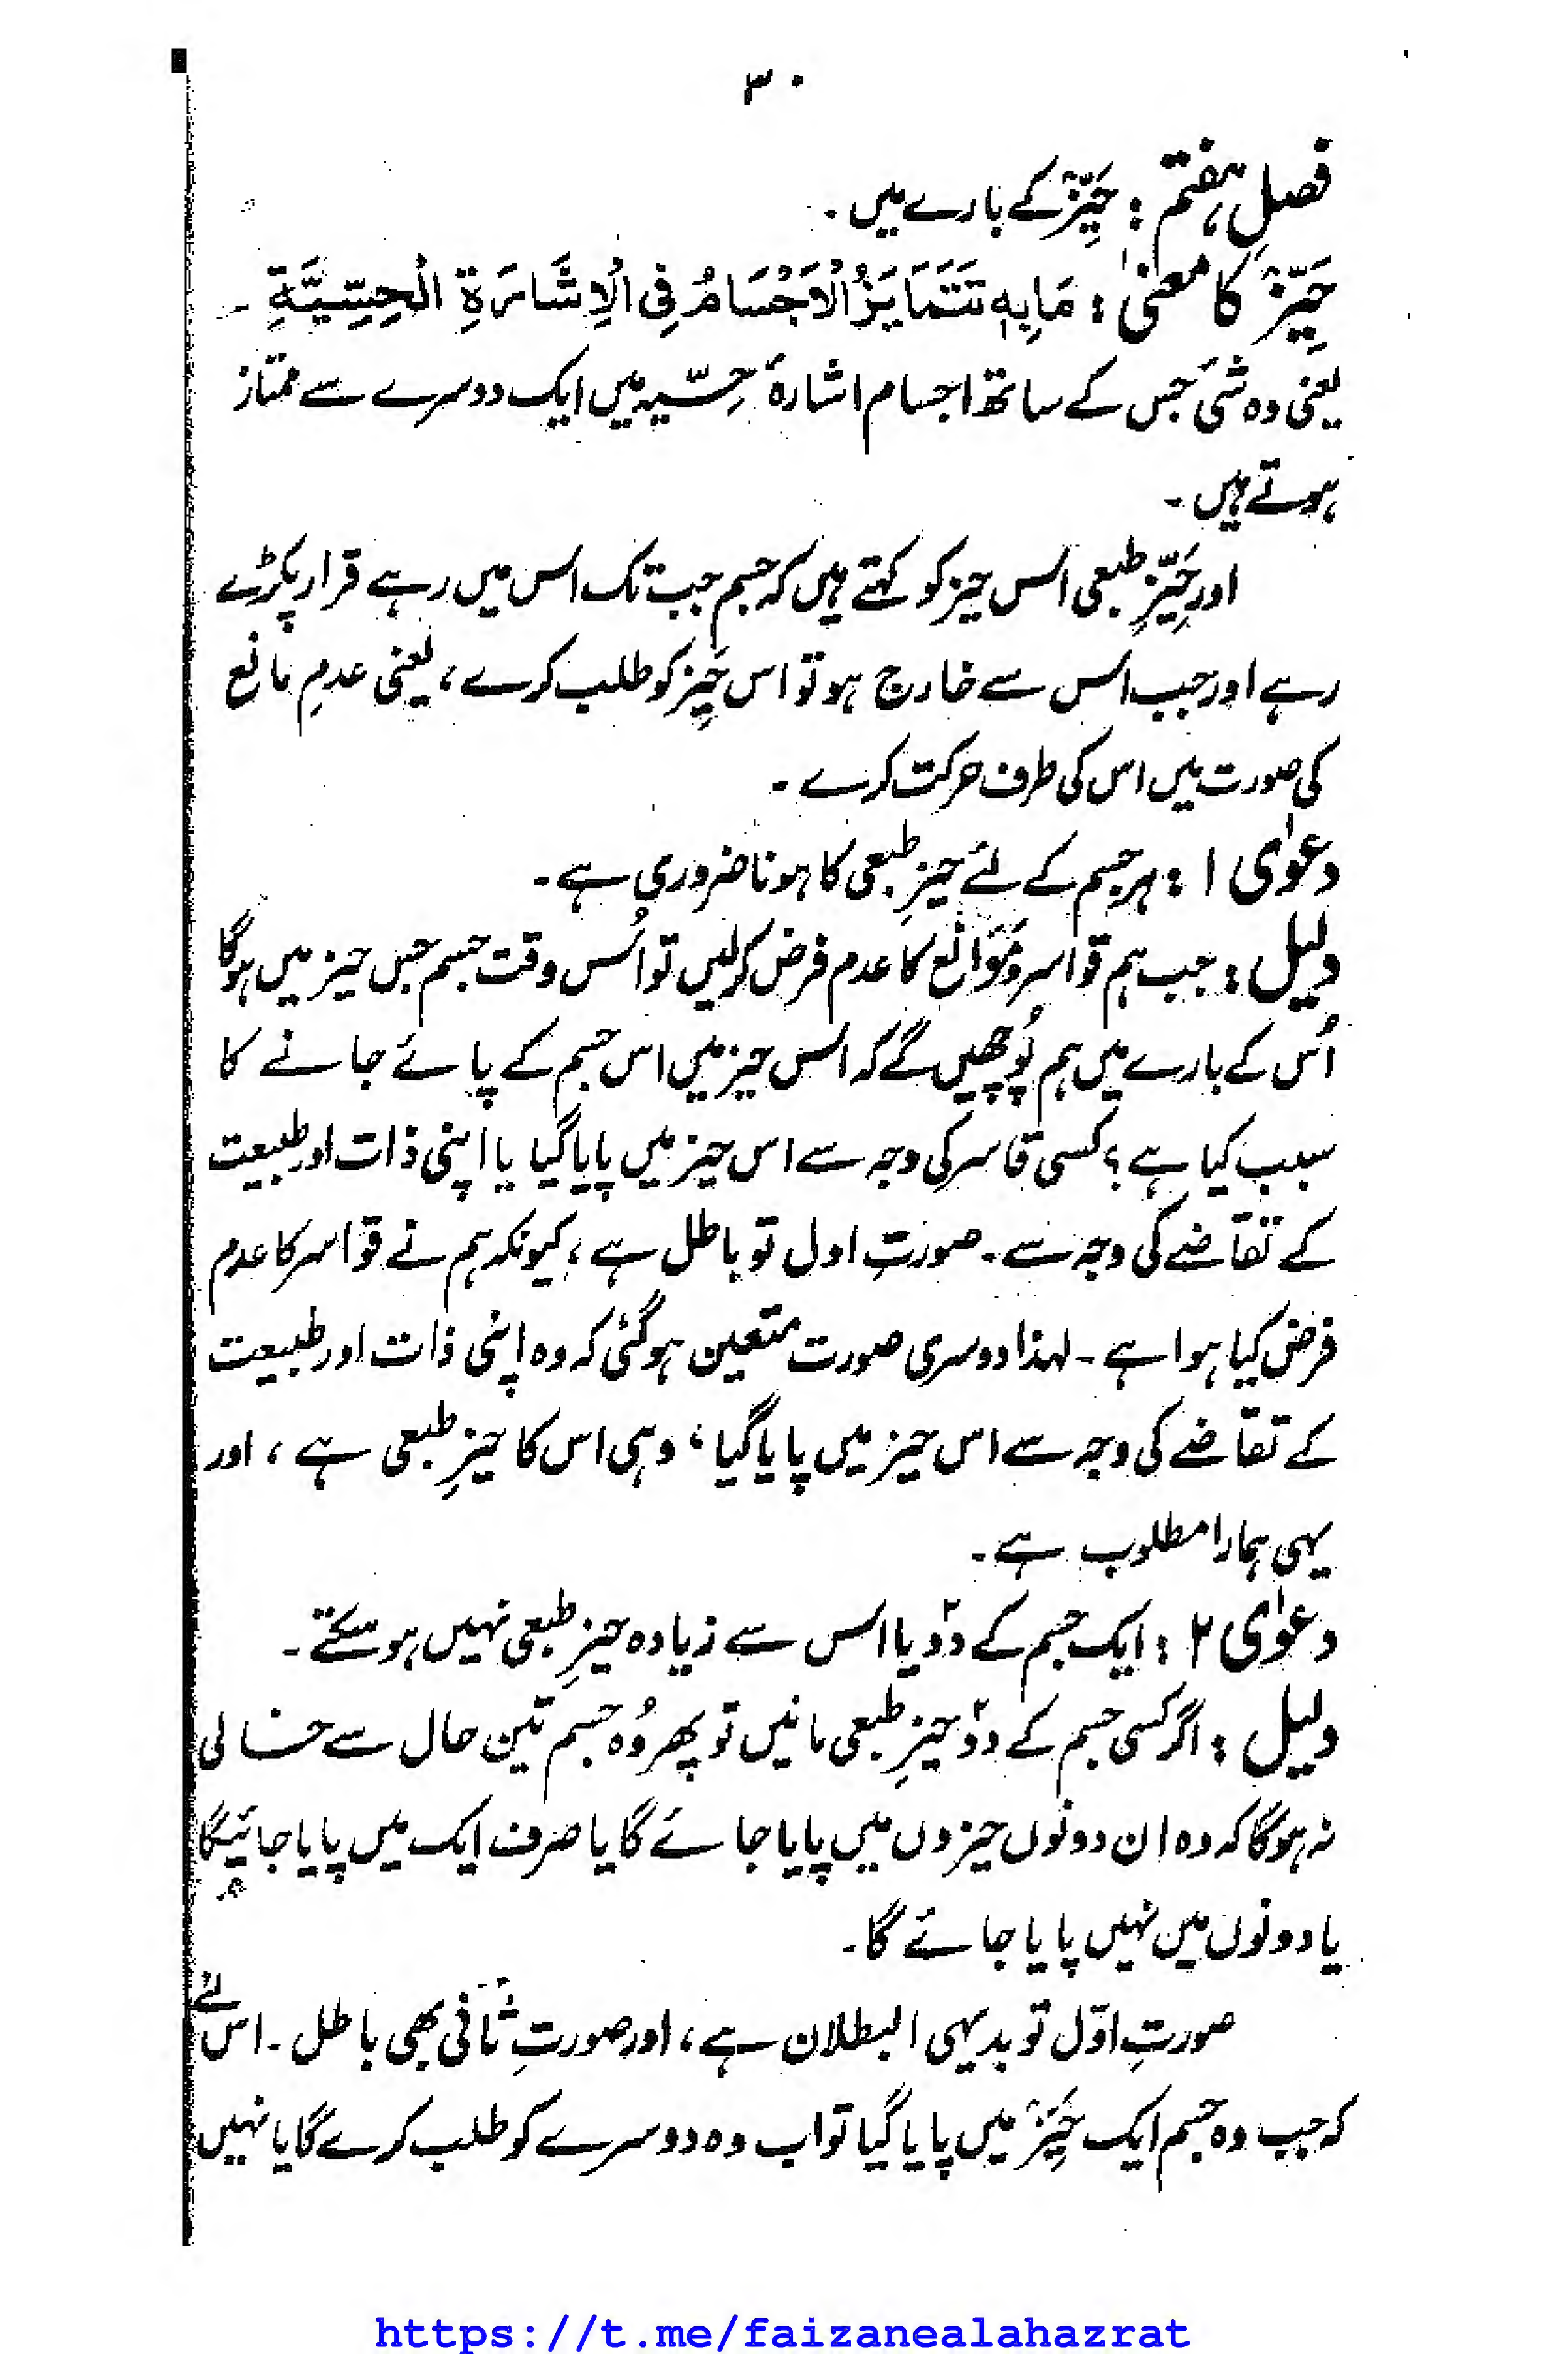 ۳۰
فصلِ ہفتم : حَیِّزْ کے بارے میں ۔
حَیِّزْ کا معنیٰ : مَابِہٖ تَتَمَایَزُ الْاَجْسَامُ فِی الْاِشَارَۃِ الْحِسِّیَّۃِ ۔
یعنی وہ شیٔ جس کے ساتھ اجسام اشارۂ حِسّیہ میں ایک دوسرے سے ممتاز
ہوتے ہیں ۔
اور حَیِّزِ طبعی اس حیز کو کہتے ہیں کہ جسم جب تک اس میں رہے قرار پکڑے
رہے اور جب اس سے خارج ہو تو اس حَیِّز کو طلب کرے ، یعنی عدمِ مانع
کی صورت میں اس کی طرف حرکت کرے ۔
دعوٰی ۱ : ہر جسم کے لئے حیزِ طبعی کا ہونا ضروری ہے ۔
دلیل : جب ہم قواسر و مَوَانع کا عدم فرض کرلیں تو اُس وقت جسم جس حیز میں ہوگا
اُس کے بارے میں ہم پُوچھیں گے کہ اس حیز میں اس جسم کے پائے جانے کا
سبب کیا ہے ؛ کسی قاسر کی وجہ سے اس حیز میں پایا گیا یا اپنی ذات اور طبیعت
کے تقاضے کی وجہ سے ۔ صورتِ اول تو باطل ہے ، کیونکہ ہم نے قواسر کا عدم
فرض کیا ہوا ہے ۔ لہذا دوسری صورت متعین ہوگئی کہ وہ اپنی ذات اور طبیعت
کے تقاضے کی وجہ سے اس حیز میں پایا گیا ، وہی اس کا حیزِ طبعی ہے ، اور
یہی ہمارا مطلوب ہے ۔
دعوٰی ۲ : ایک جسم کے دو یا اس سے زیادہ حیزِ طبعی نہیں ہوسکتے ۔
دلیل : اگر کسی جسم کے دو حیزِ طبعی مانیں تو پھر وُہ جسم تین حال سے خالی
نہ ہوگا کہ وہ ان دونوں حیزوں میں پایا جائے گا یا صرف ایک میں پایا جائیگا
یا دونوں میں نہیں پایا جائے گا ۔
صورتِ اوّل تو بدیہی البطلان ہے ، اور صورتِ ثانی بھی باطل ۔ اس لئے
کہ جب وہ جسم ایک حَیِّزْ میں پایا گیا تو اب وہ دوسرے کو طلب کرے گا یا نہیں
https://t.me/faizanealahazrat